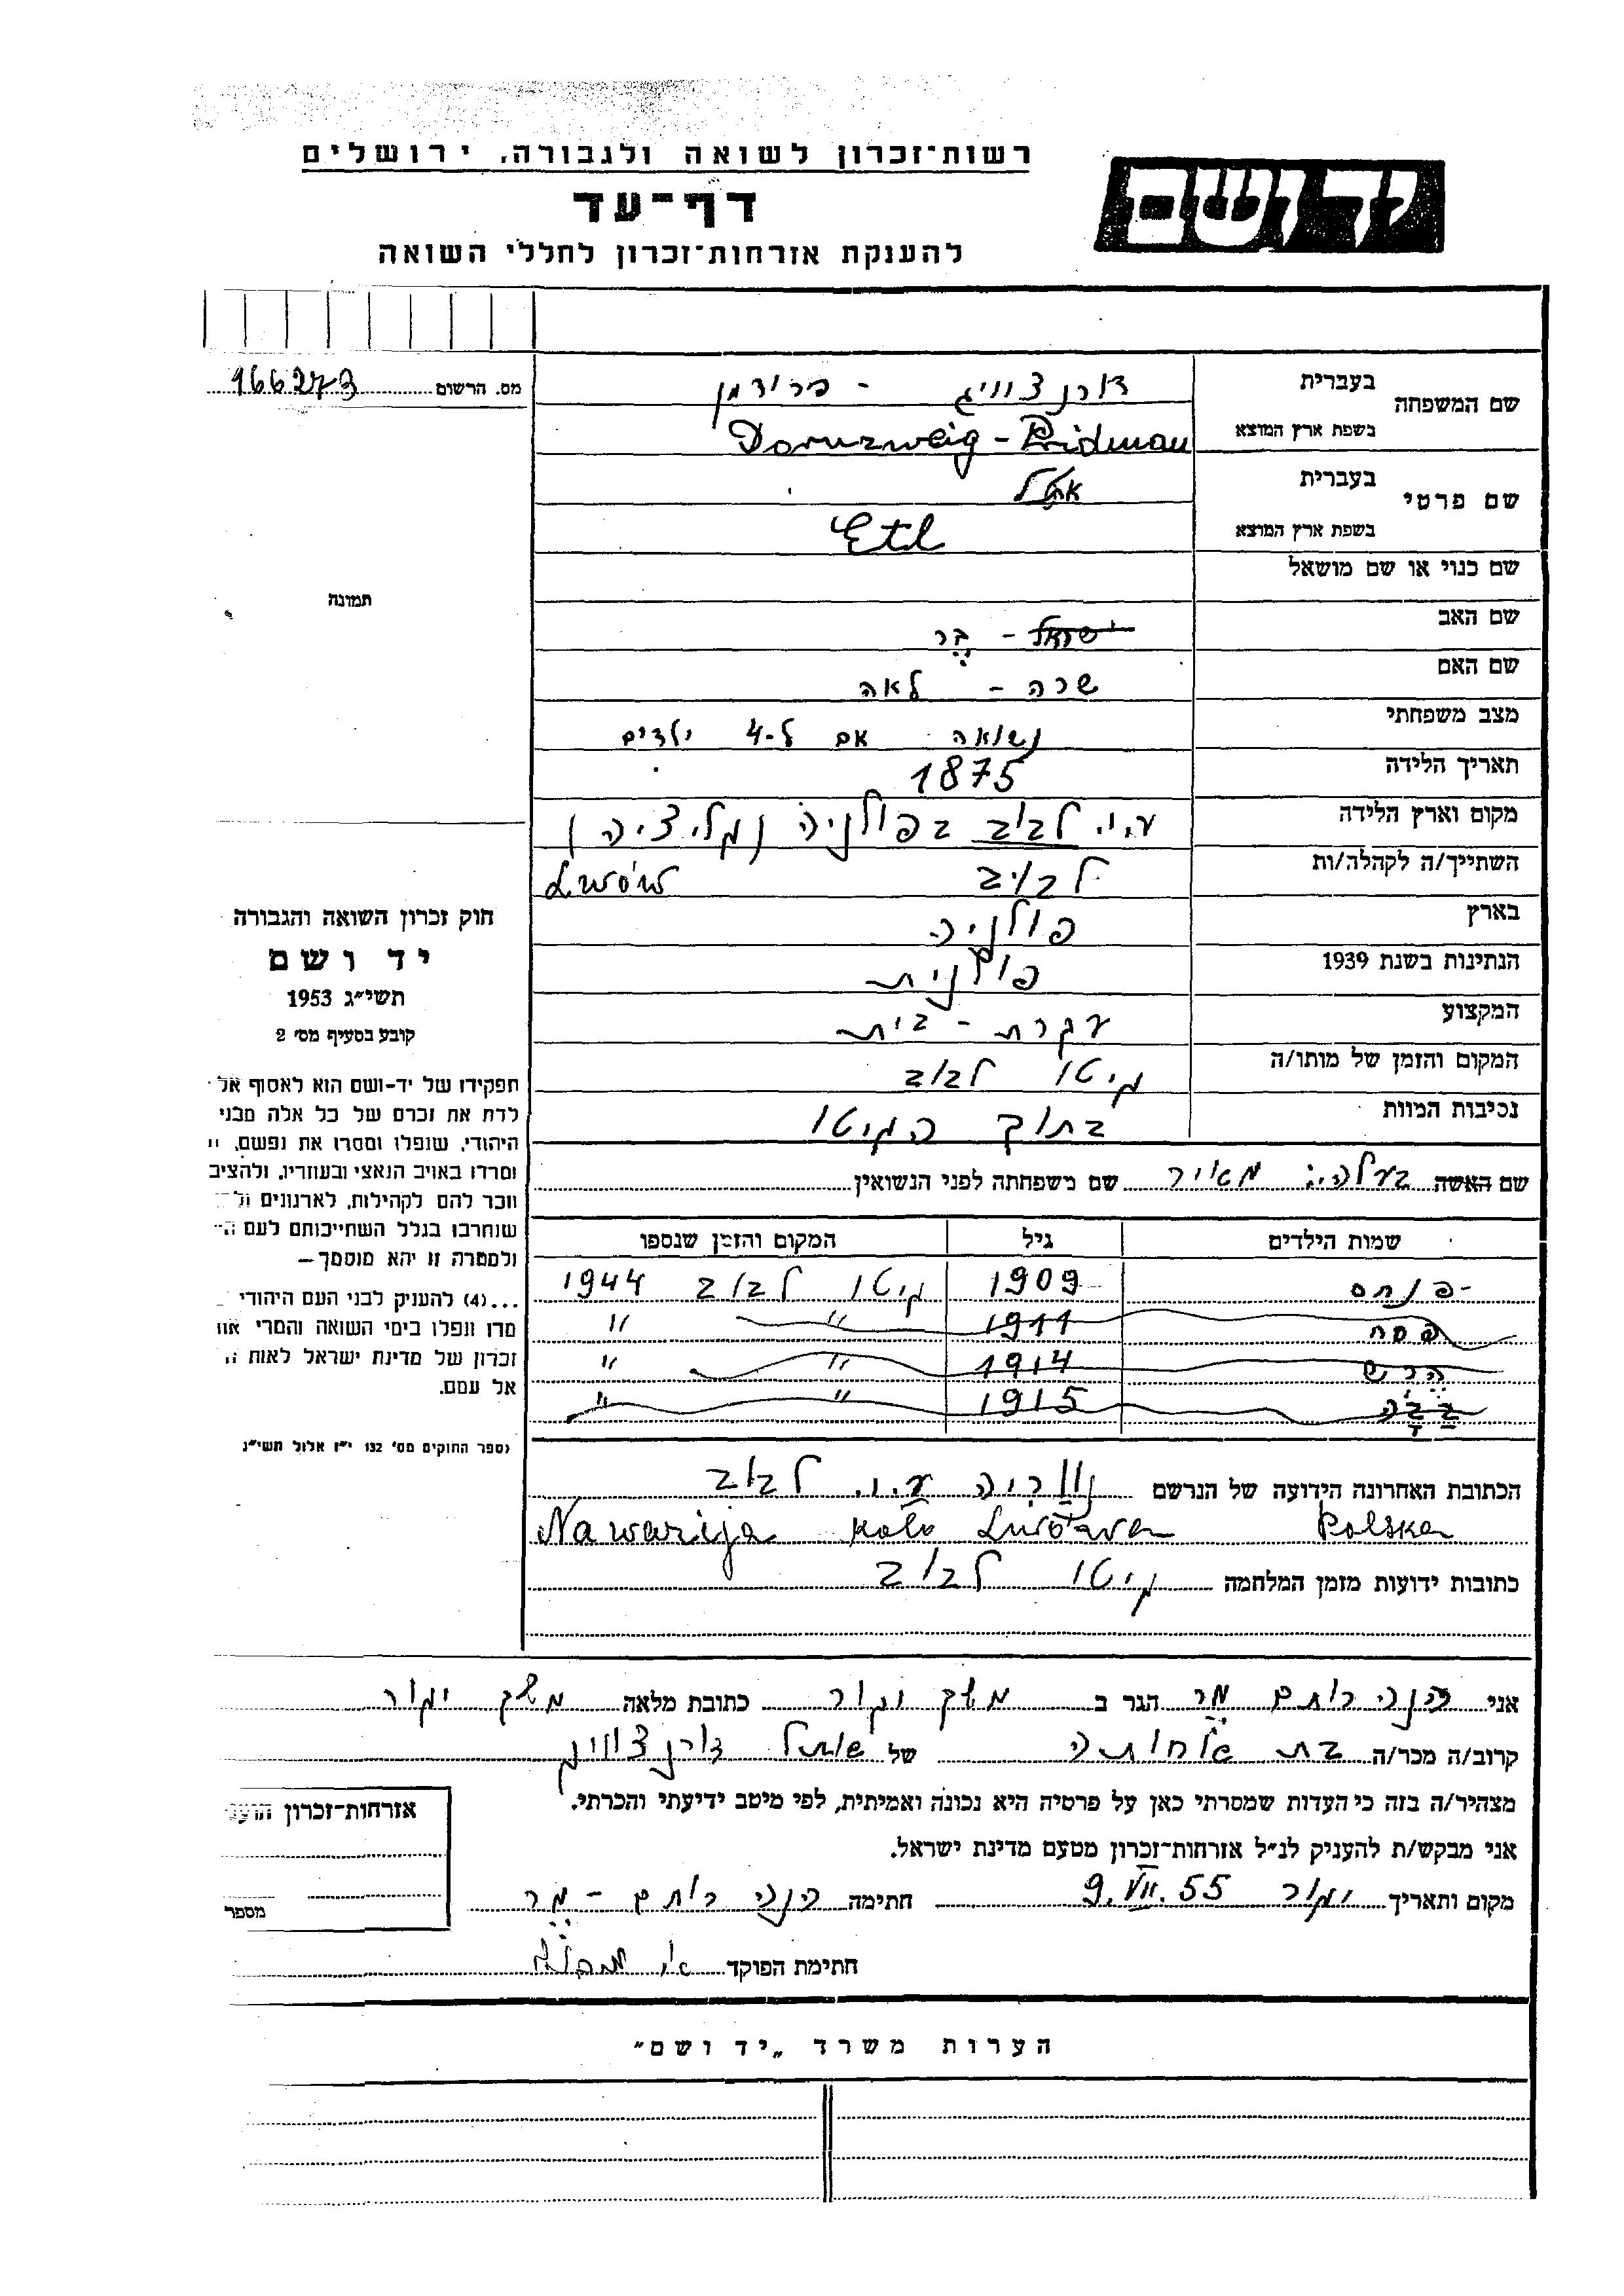 רשות־זכרון לשואה ולגבורה, ירושלים
יד ושם
דף־עד
להענקת אזרחות־זכרון לחללי השואה
מס. הרשום 166273
שם המשפחה
בעברית דורנצווייג - פרידמן
בשפת ארץ המוצא Dornzweig - Fridman
שם פרטי
בעברית אטל
בשפת ארץ המוצא Etl
שם כנוי או שם מושאל
תמונה
שם האב ישראל - בר
שם האם שרה - לאה
מצב משפחתי נשואה אם ל-4 ילדים
תאריך הלידה 1875
מקום וארץ הלידה ע.י. לבוב בפולניה (גליציה)
השתייך/ה לקהלה/ות לבוב Lwów
בארץ פולניה
הנתינות בשנת 1939 פולנית
המקצוע עקרת - בית
המקום והזמן של מותו/ה גיטו לבוב
נסיבות המוות בתוך הגיטו
שם האשה בעלה: מאיר שם משפחתה לפני הנשואין
שמות הילדים גיל המקום והזמן שנספו
פנחס 1909 גיטו לבוב 1944
פסח 1911 " "
הרש 1914 " "
1915 " "
הכתובת האחרונה הידועה של הנרשם נווריה ע.י. לבוב
Nawarija koło Lwowa Polska
כתובות ידועות מזמן המלחמה גיטו לבוב
חוק זכרון השואה והגבורה
יד ושם
תשי״ג 1953
קובע בסעיף מס׳ 2
תפקידו של יד-ושם הוא לאסוף אל
לדת את זכרם של כל אלה מבני
היהודי, שנפלו ומסרו את נפשם,
ומרדו באויב הנאצי ובעוזריו, ולהציב
וזכר להם לקהילות, לארגונים
שנחרבו בגלל השתייכותם לעם
ולמטרה זו יהא מוסמך—
...(4) להעניק לבני העם היהודי
מדו ונפלו בימי השואה והמרי
זכרון של מדינת ישראל לאות
אל עמם.
(ספר החוקים מס׳ 132 י״ז אלול תשי״ג
אני חנה רותם מר הגר ב משק יגור כתובת מלאה משק יגור
קרוב/ה מכר/ה בת אחותה של אטל דורנצווייג
מצהיר/ה בזה כי העדות שמסרתי כאן על פרטיה היא נכונה ואמיתית, לפי מיטב ידיעתי והכרתי.
אני מבקש/ת להעניק לנ״ל אזרחות־זכרון מטעם מדינת ישראל.
מקום ותאריך יגור 9.VII.55 חתימה חנה רותם - מר
חתימת הפוקד
אזרחות־זכרון
מספר
הערות משרד „יד ושם״